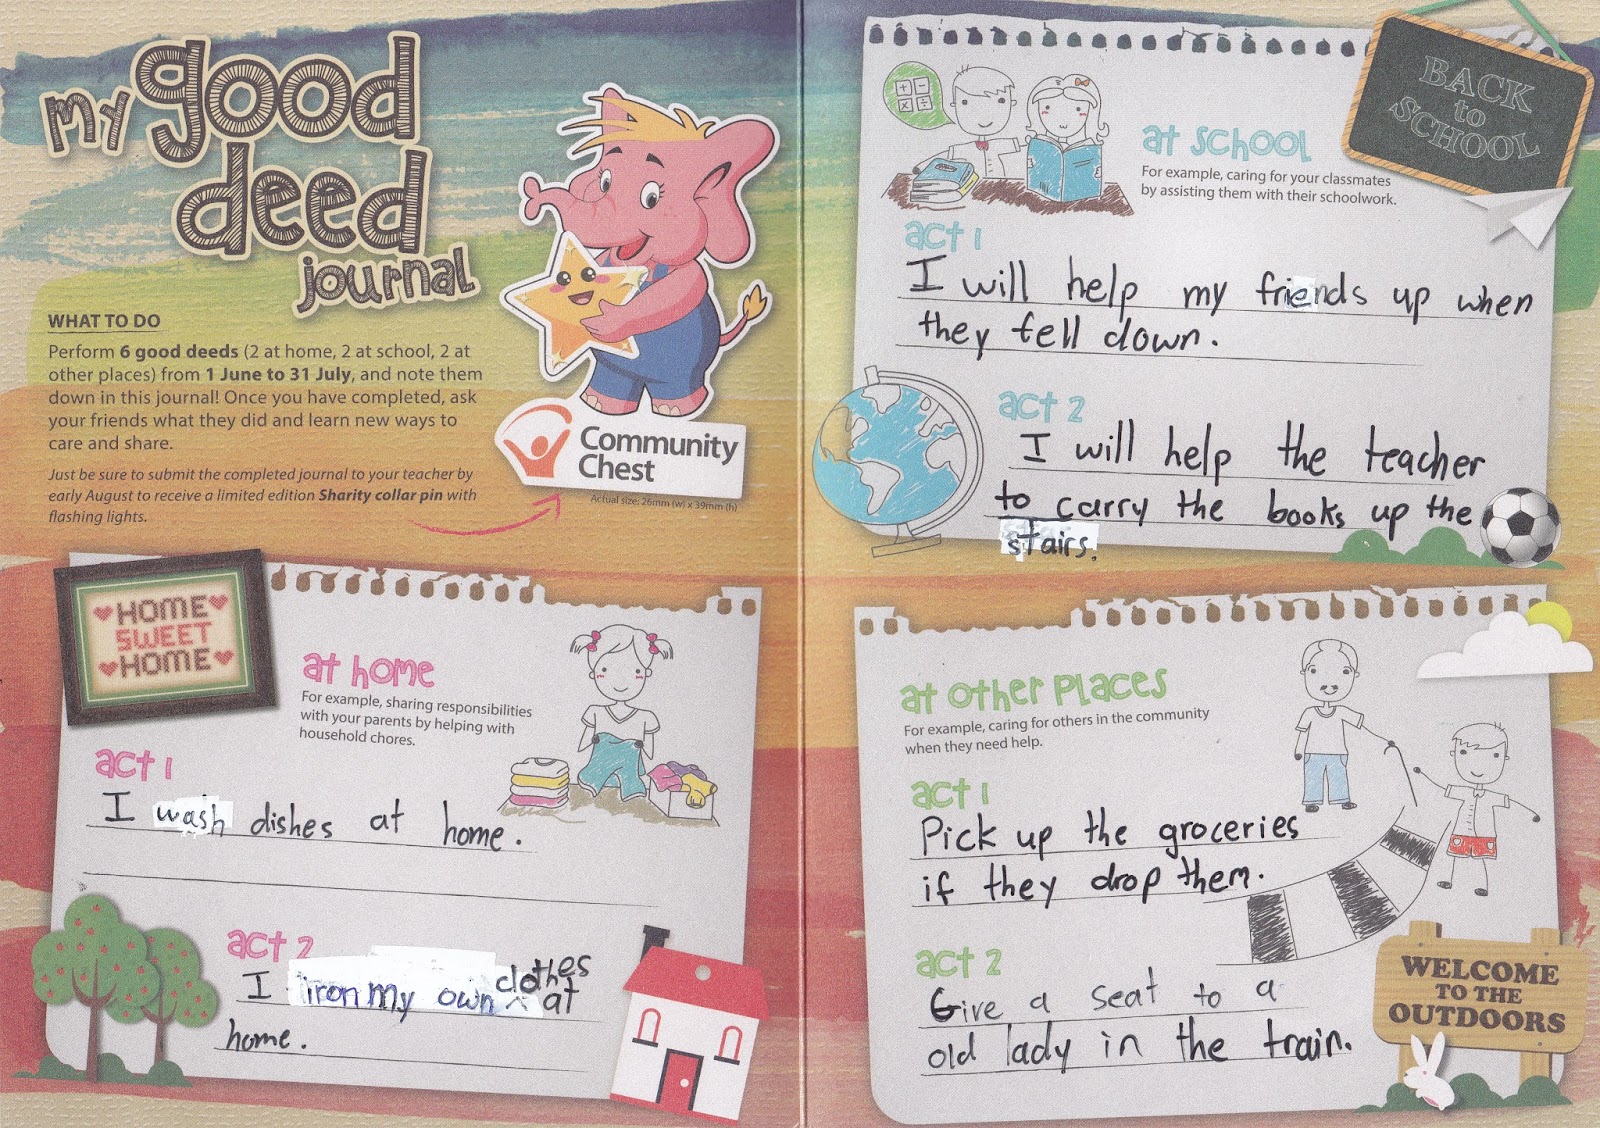 my good
deed
journal
WHAT TO DO
Perform 6 good deeds (2 at home, 2 at school, 2 at
other places) from 1 June to 31 July, and note them
down in this journal! Once you have completed, ask
your friends what they did and learn new ways to
care and share.
Just be sure to submit the completed journal to your teacher by
early August to receive a limited edition Sharity collar pin with
flashing lights.
Community
Chest
Actual size: 26mm (w) x 39mm (h)
HOME
SWEET
HOME
at home
For example, sharing responsibilities
with your parents by helping with
household chores.
act 1
I wash dishes at home.
act 2
I iron my own clothes at
home.
BACK
to
SCHOOL
at school
For example, caring for your classmates
by assisting them with their schoolwork.
act 1
I will help my friends up when
they fell down.
act 2
I will help the teacher
to carry the books up the
stairs.
at other places
For example, caring for others in the community
when they need help.
act 1
Pick up the groceries
if they drop them.
act 2
Give a seat to a
old lady in the train.
WELCOME
TO THE
OUTDOORS